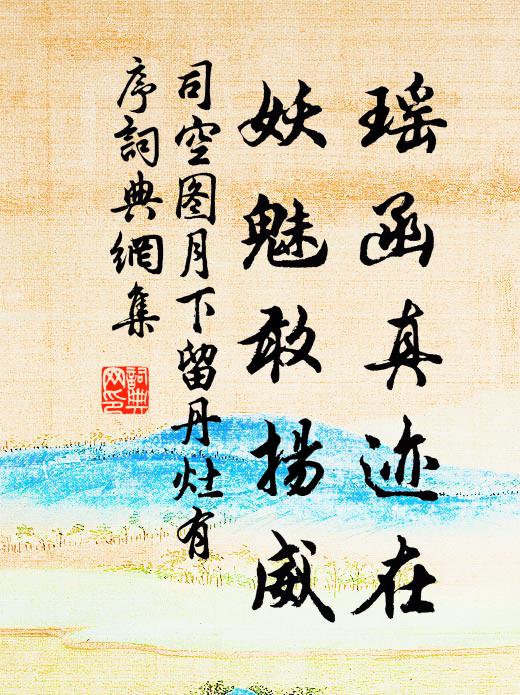 瑶函真迹在
妖魅敢揚威
司空图月下留丹灶有
序詞典網集
詞典
网印